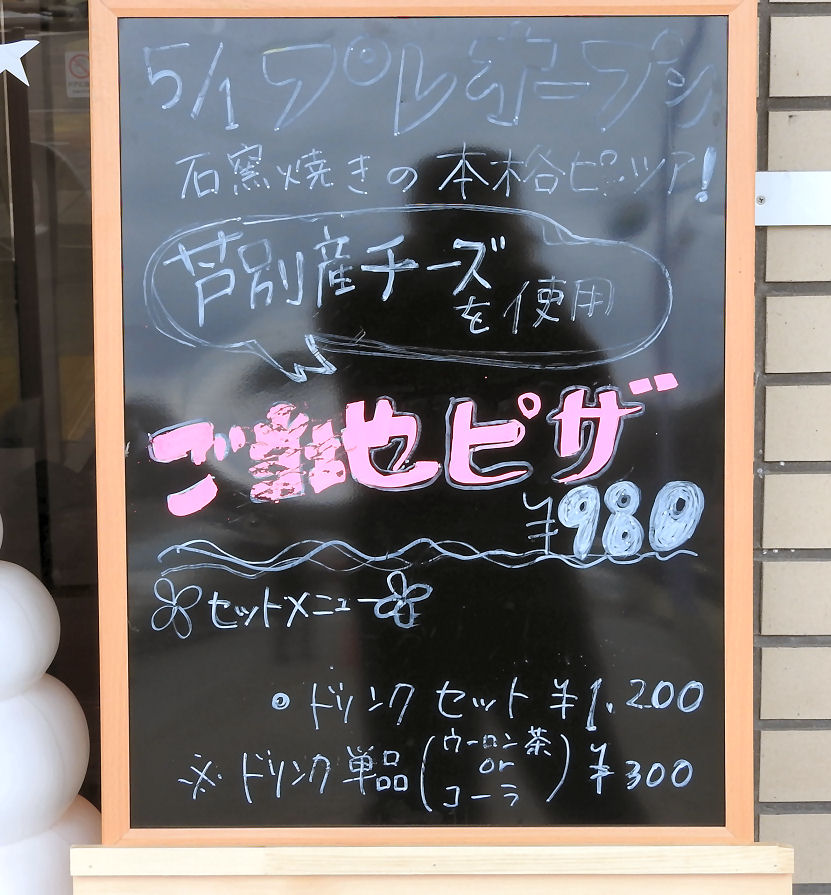 5/1 プレオープン
石窯焼きの本格ピッツァ!
芦別産チーズ
を使用
ご当地ピザ
¥980
セットメニュー
◎ドリンクセット ¥1.200
※ドリンク単品(ウーロン茶 or コーラ) ¥300